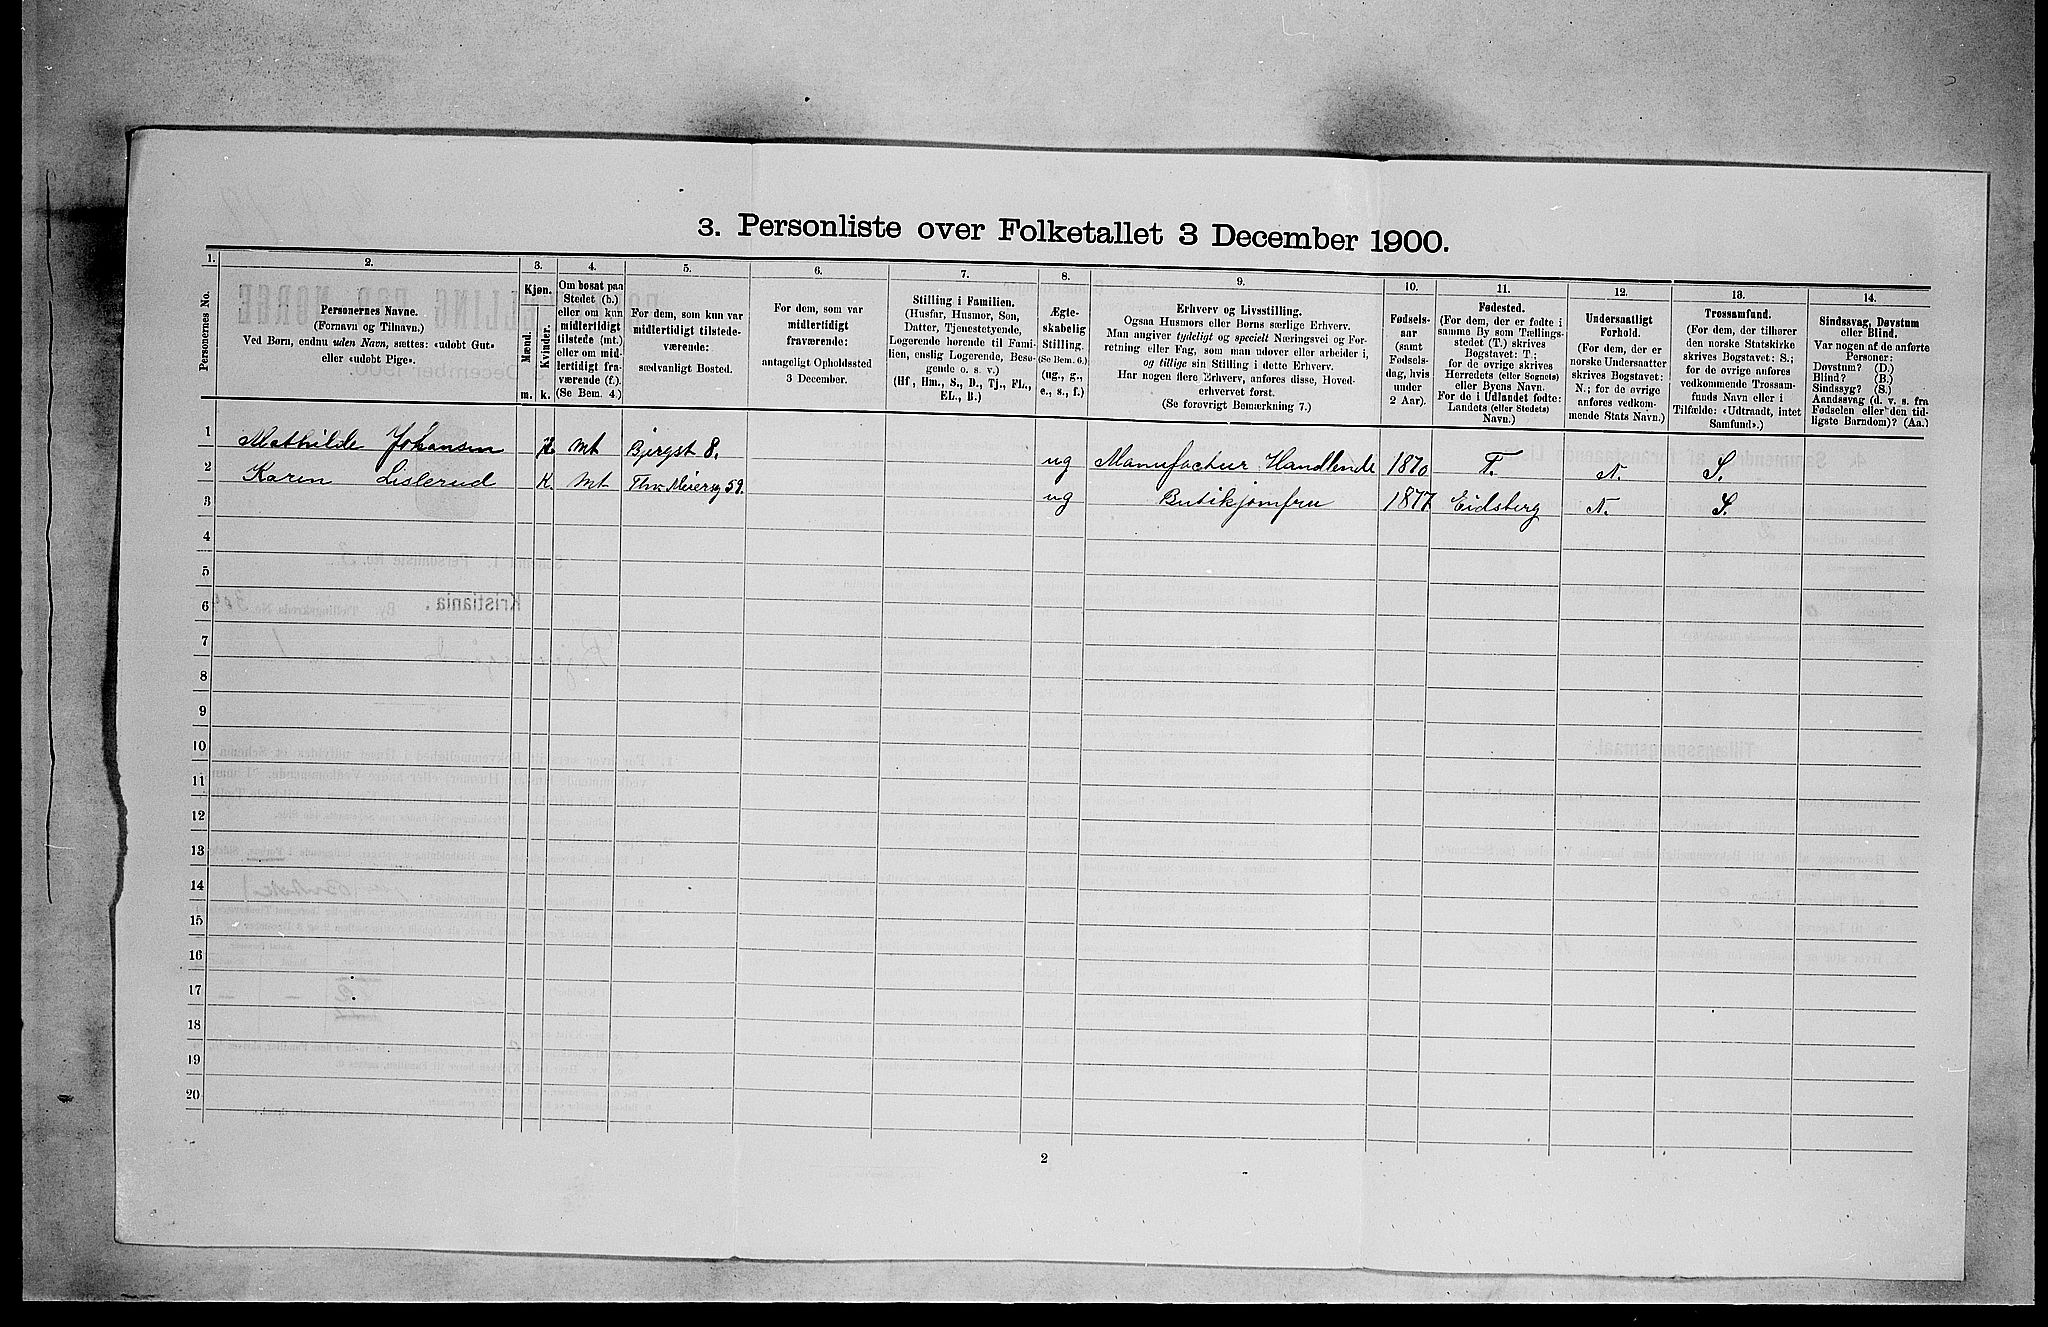 3. Personliste over Folketallet 3 December 1900.
1. 2. 3. 4. 5. 6. 7. 8. 9. 10. 11. 12. 13. 14.
Personernes No.
Personernes Navne.
(Fornavn og Tilnavn.)
Ved Børn, endnu uden Navn, sættes: «udøbt Gut»
eller «udøbt Pige».
Kjøn.
Mænd.
Kvinder.
m. k.
Om bosat paa
Stedet (b.)
eller om kun
midlertidigt
tilstede (mt.)
eller om mid-
lertidigt fra-
værende (f.)
(Se Bem. 4.)
For dem, som kun var
midlertidigt tilstede-
værende:
sædvanligt Bosted.
For dem, som var
midlertidigt
fraværende:
antageligt Opholdssted
3 December.
Stilling i Familien.
(Husfar, Husmor, Søn,
Datter, Tjenestetyende,
Logerende hørende til Fami-
lien, enslig Logerende, Besø-
gende o. s. v.)
(Hf, Hm., S., D., Tj., FL.,
EL., B.)
Ægte-
skabelig
Stilling.
(Se Bem. 6.)
(ug., g.,
e., s., f.)
Erhverv og Livsstilling.
Ogsaa Husmors eller Børns særlige Erhverv.
Man angiver tydeligt og specielt Næringsvei og For-
retning eller Fag, som man udøver eller arbeider i,
og tillige sin Stilling i dette Erhverv.
Har nogen flere Erhverv, anføres disse, Hoved-
erhvervet først.
(Se forøvrigt Bemærkning 7.)
Fødsels-
aar
(samt
Fødsels-
dag, hvis
under
2 Aar).
Fødested.
(For dem, der er fødte i
samme By som Tællings-
stedet (T.) skrives
Bogstavet: T.;
for de øvrige skrives
Herredets (eller Sognets)
eller Byens Navn.
For de i Udlandet fødte:
Landets (eller Stedets)
Navn.)
Undersaatligt
Forhold.
(For dem, der er
norske Undersaatter
skrives Bogstavet:
N.; for de øvrige
anføres vedkom-
mende Stats Navn.)
Trossamfund.
(For dem, der tilhører
den norske Statskirke
skrives Bogstavet: S.;
for de øvrige anføres
vedkommende Trossam-
funds Navn eller i
Tilfælde: «Udtraadt, intet
Samfund».)
Sindssvag, Døvstum
eller Blind.
Var nogen af de anførte
Personer:
Døvstum? (D.)
Blind? (B.)
Sindssyg? (S.)
Aandssvag (d. v. s. fra
Fødselen eller den tid-
ligste Barndom)? (Aa.)
1 Mathilde Johansen K. mt Bjergst 8. ug Manufactur Handlende 1870 T. N. S.
2 Karen Lislerud K. mt Thv. Meiersg 59. ug Butikjomfru 1877 Eidsberg N. S.
3
4
5
6
7
8
9
10
11
12
13
14
15
16
17
18
19
20
2